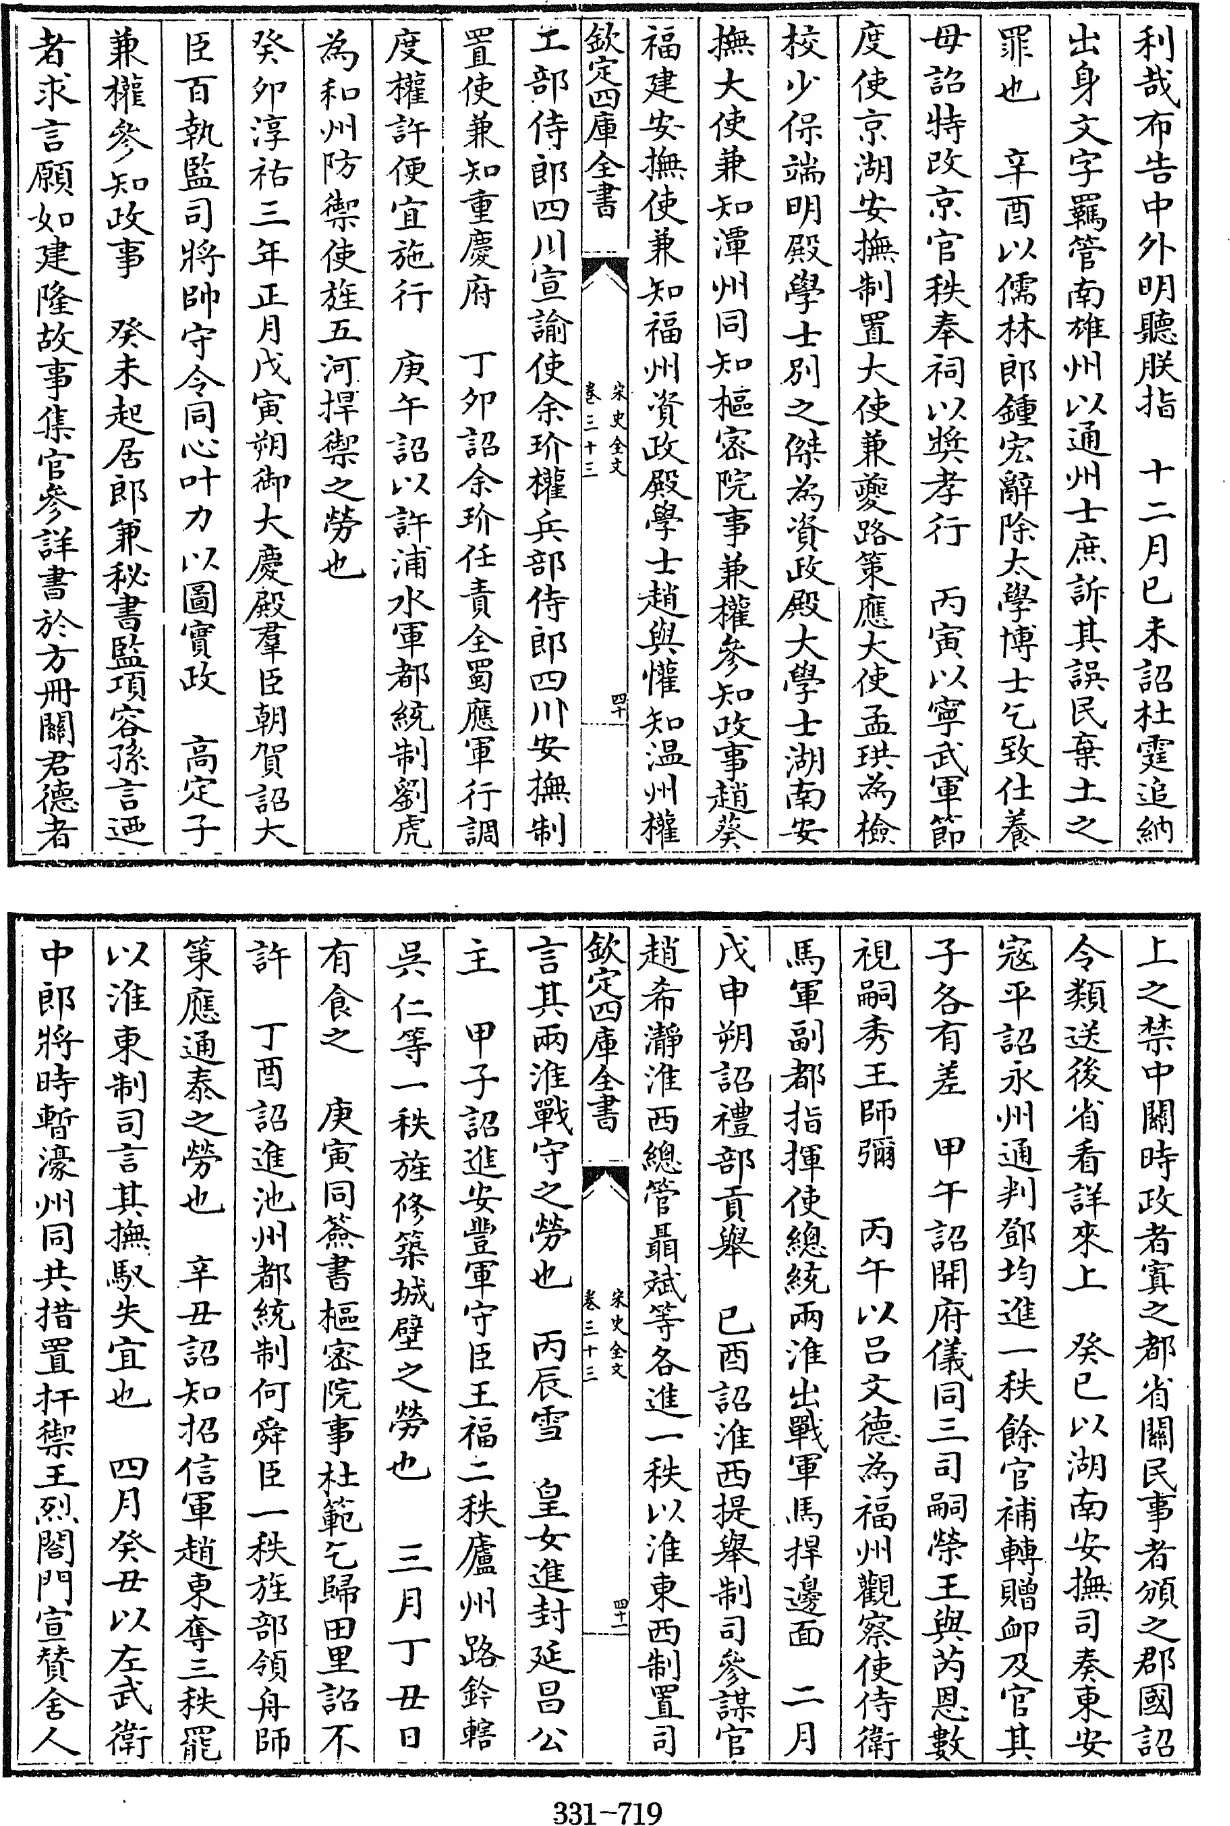 利哉布告中外明聽朕指　十二月已未詔杜霆追納
出身文字羈管南雄州以通州士庶訴其誤民棄土之
罪也　辛酉以儒林郎鍾宏辭除太學博士乞致仕養
母詔特改京官秩奉祠以奬孝行　丙寅以寧武軍節
度使京湖安撫制置大使兼夔路策應大使孟珙為檢
校少保端明殿學士別之傑為資政殿大學士湖南安
撫大使兼知潭州同知樞密院事兼權參知政事趙葵
福建安撫使兼知福州資政殿學士趙與懽知温州權
欽定四庫全書
宋史全文
卷三十三
四十
工部侍郎四川宣諭使余玠權兵部侍郎四川安撫制
置使兼知重慶府　丁卯詔余玠任責全蜀應軍行調
度權許便宜施行　庚午詔以許浦水軍都統制劉虎
為和州防禦使旌五河捍禦之勞也
癸卯淳祐三年正月戊寅朔御大慶殿羣臣朝賀詔大
臣百執監司將帥守令同心叶力以圖實政　高定子
兼權參知政事　癸未起居郎兼秘書監項容孫言迺
者求言願如建隆故事集官參詳書於方冊關君德者
上之禁中關時政者寘之都省關民事者頒之郡國詔
令類送後省看詳來上　癸巳以湖南安撫司奏東安
寇平詔永州通判鄧均進一秩餘官補轉贈卹及官其
子各有差　甲午詔開府儀同三司嗣榮王與芮恩數
視嗣秀王師彌　丙午以吕文德為福州觀察使侍衛
馬軍副都指揮使總統兩淮出戰軍馬捍邊面　二月
戊申朔詔禮部貢舉　已酉詔淮西提舉制司參謀官
趙希瀞淮西總管聶斌等各進一秩以淮東西制置司
欽定四庫全書
宋史全文
卷三十三
四十一
言其兩淮戰守之勞也　丙辰雪　皇女進封延昌公
主　甲子詔進安豐軍守臣王福二秩廬州路鈐轄
吳仁等一秩旌修築城壁之勞也　三月丁丑日
有食之　庚寅同簽書樞密院事杜範乞歸田里詔不
許　丁酉詔進池州都統制何舜臣一秩旌部領舟師
策應通泰之勞也　辛丑詔知招信軍趙東奪三秩罷
以淮東制司言其撫馭失宜也　四月癸丑以左武衛
中郎將時暫濠州同共措置扞禦王烈閤門宣贊舍人
331-719